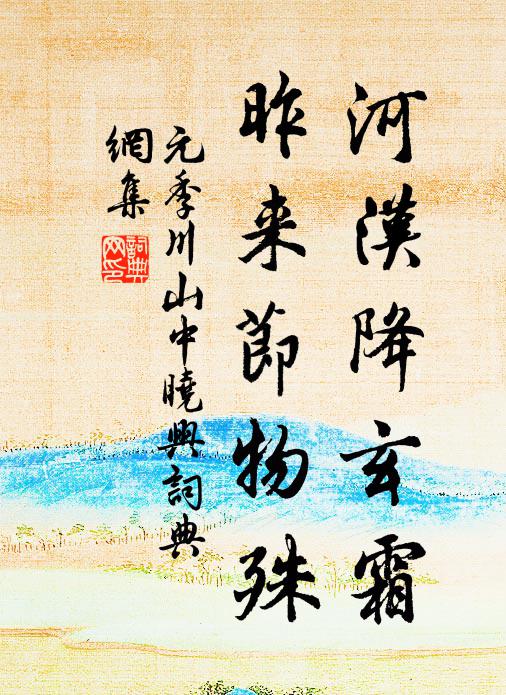 河漢降玄霜
昨来節物殊
元季川山中曉興詞典
網集
詞典
网印